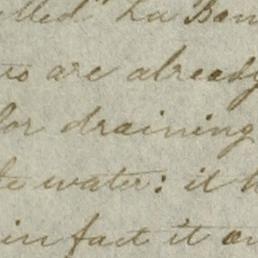 La Bon
are already
for draining
water: it
in fact it